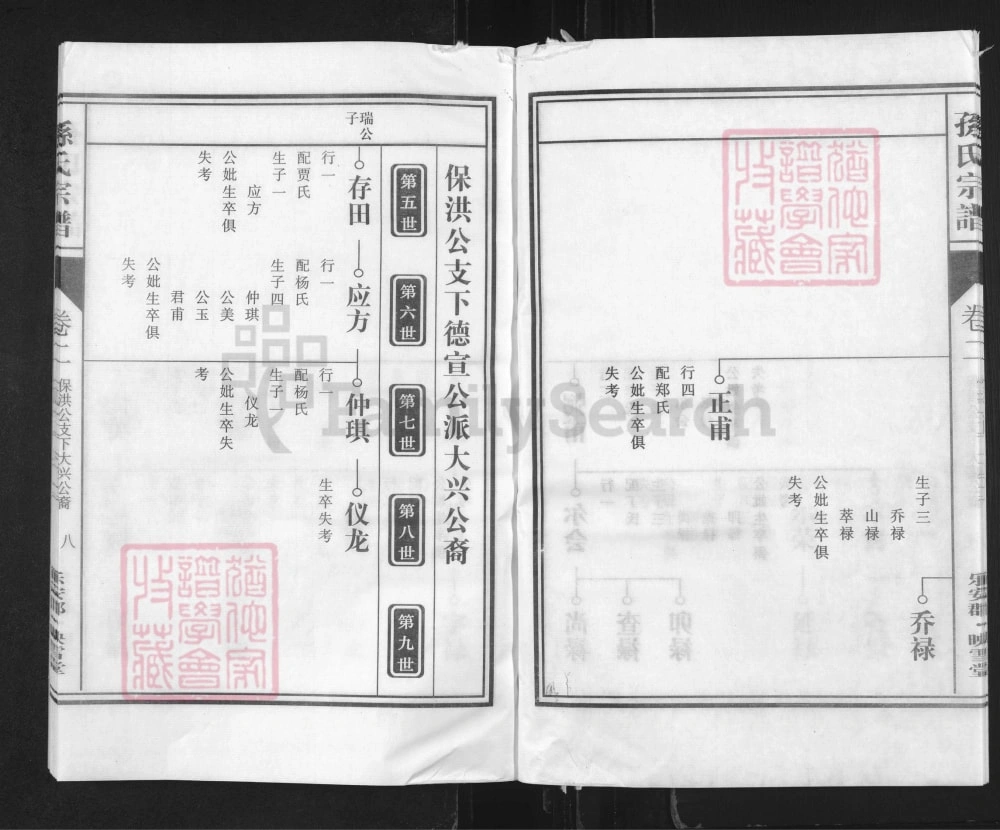 孫氏宗譜
卷二
乐安郡·映雪堂
乔禄
生子三
乔禄
山禄
萃禄
公妣生卒俱
失考
正甫
行四
配郑氏
公妣生卒俱
失考
保洪公支下德宣公派大兴公裔
第五世
第六世
第七世
第八世
第九世
瑞公
子
存田
行一
配贾氏
生子一
应方
公妣生卒俱
失考
应方
行一
配杨氏
生子四
仲琪
公美
公玉
君甫
公妣生卒俱
失考
仲琪
行一
配杨氏
生子一
仪龙
公妣生卒失
考
仪龙
生卒失考
孫氏宗譜
卷二
保洪公支下大兴公裔
八
FamilySearch